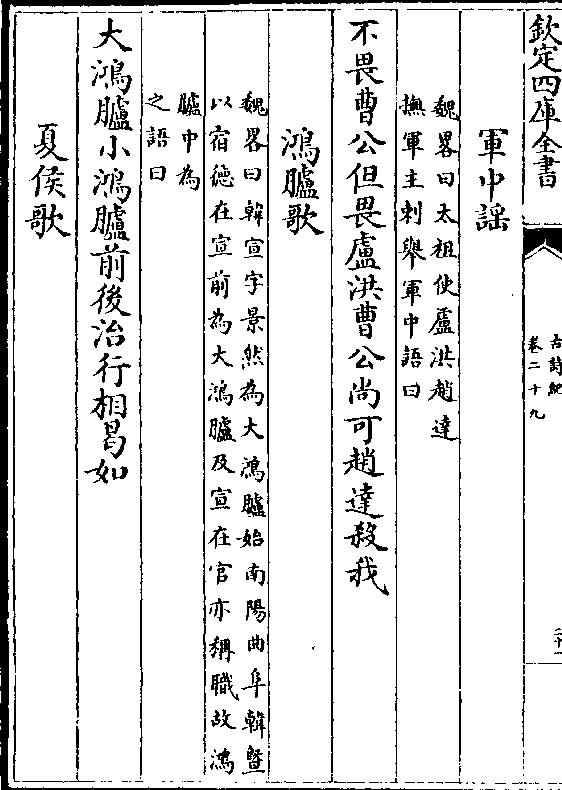 欽定四庫全書
古詩紀
卷二十九
軍中謡
魏畧曰太祖使盧洪趙達
撫軍主刺舉軍中語曰
不畏曹公但畏盧洪曹公尚可趙達殺我
鴻臚歌
魏畧曰韓宣字景然為大鴻臚始南陽曲阜韓曁
以宿德在宣前為大鴻臚及宣在官亦稱職故鴻
臚中為
之語曰
大鴻臚小鴻臚前後治行相曷如
夏侯歌